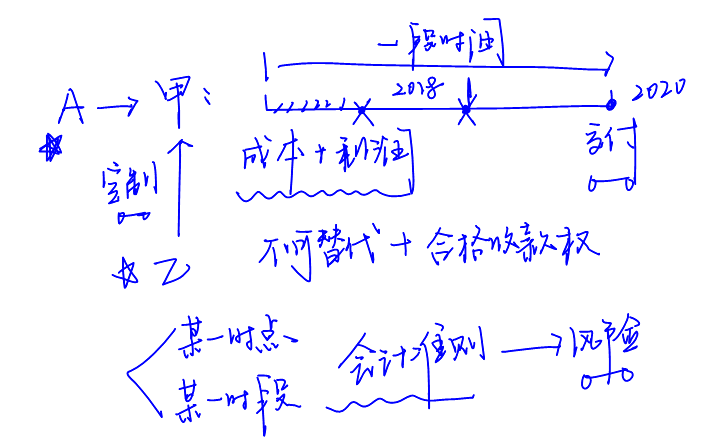 一段时间
A → 甲:
2018
2020
定制
成本 + 利润
交付
乙
不可替代 + 合格收款权
某一时点
某一时段
会计准则 →